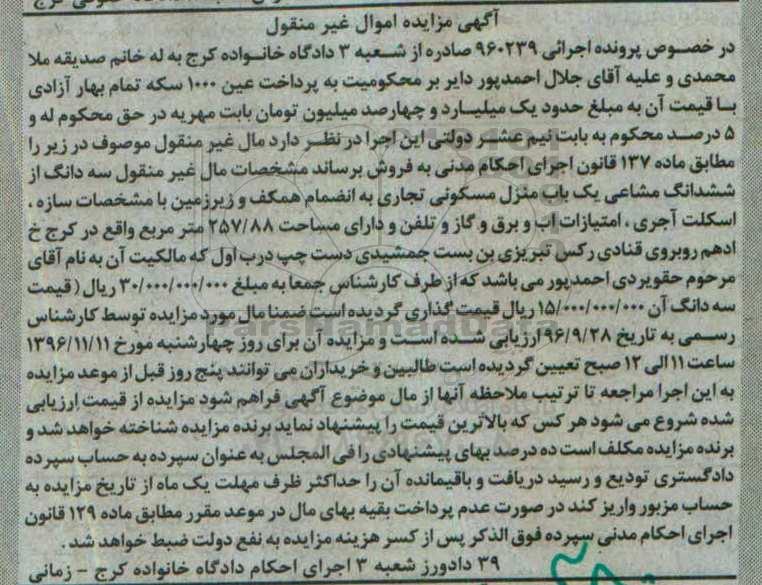 آگهی مزایده اموال غیر منقول
در خصوص پرونده اجرائی ۹۶۰۲۳۹ صادره از شعبه ۳ دادگاه خانواده کرج به له خانم صدیقه ملا
محمدی و علیه آقای جلال احمدپور دایر بر محکومیت به پرداخت عین ۱۰۰۰ سکه تمام بهار آزادی
با قیمت آن به مبلغ حدود یک میلیارد و چهارصد میلیون تومان بابت مهریه در حق محکوم له و
۵ درصد محکوم به بابت نیم عشر دولتی این اجرا در نظر دارد مال غیر منقول موصوف در زیر را
مطابق ماده ۱۳۷ قانون اجرای احکام مدنی به فروش برساند مشخصات مال غیر منقول سه دانگ از
ششدانگ مشاعی یک باب منزل مسکونی تجاری به انضمام همکف و زیرزمین با مشخصات سازه ،
اسکلت آجری ، امتیازات آب و برق و گاز و تلفن و دارای مساحت ۲۵۷/۸۸ متر مربع واقع در کرج خ
ادهم روبروی قنادی رکس تبریزی بن بست جمشیدی دست چپ درب اول که مالکیت آن به نام آقای
مرحوم حقویردی احمدپور می باشد که از طرف کارشناس جمعا به مبلغ ۳۰/۰۰۰/۰۰۰/۰۰۰ ریال ( قیمت
سه دانگ آن ۱۵/۰۰۰/۰۰۰/۰۰۰ ریال قیمت گذاری گردیده است ضمنا مال مورد مزایده توسط کارشناس
رسمی به تاریخ ۹۶/۹/۲۸ ارزیابی شده است و مزایده آن برای روز چهارشنبه مورخ ۱۳۹۶/۱۱/۱۱
ساعت ۱۱ الی ۱۲ صبح تعیین گردیده است طالبین و خریداران می توانند پنج روز قبل از موعد مزایده
به این اجرا مراجعه تا ترتیب ملاحظه آنها از مال موضوع آگهی فراهم شود مزایده از قیمت ارزیابی
شده شروع می شود هر کس که بالاترین قیمت را پیشنهاد نماید برنده مزایده شناخته خواهد شد و
برنده مزایده مکلف است ده درصد بهای پیشنهادی را فی المجلس به عنوان سپرده به حساب سپرده
دادگستری تودیع و رسید دریافت و باقیمانده آن را حداکثر ظرف مهلت یک ماه از تاریخ مزایده به
حساب مزبور واریز کند در صورت عدم پرداخت بقیه بهای مال در موعد مقرر مطابق ماده ۱۲۹ قانون
اجرای احکام مدنی سپرده فوق الذکر پس از کسر هزینه مزایده به نفع دولت ضبط خواهد شد .
۳۹ دادورز شعبه ۳ اجرای احکام دادگاه خانواده کرج - زمانی